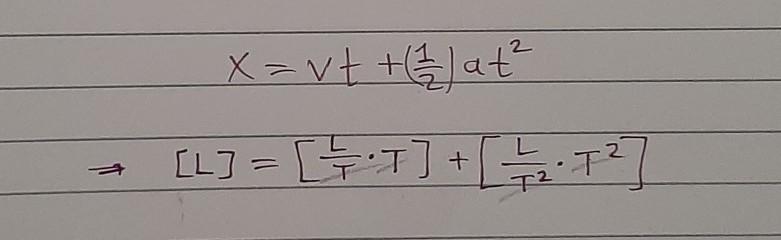 x = vt + (1/2) at²
→ [L] = [L/T · T] + [L/T² · T²]